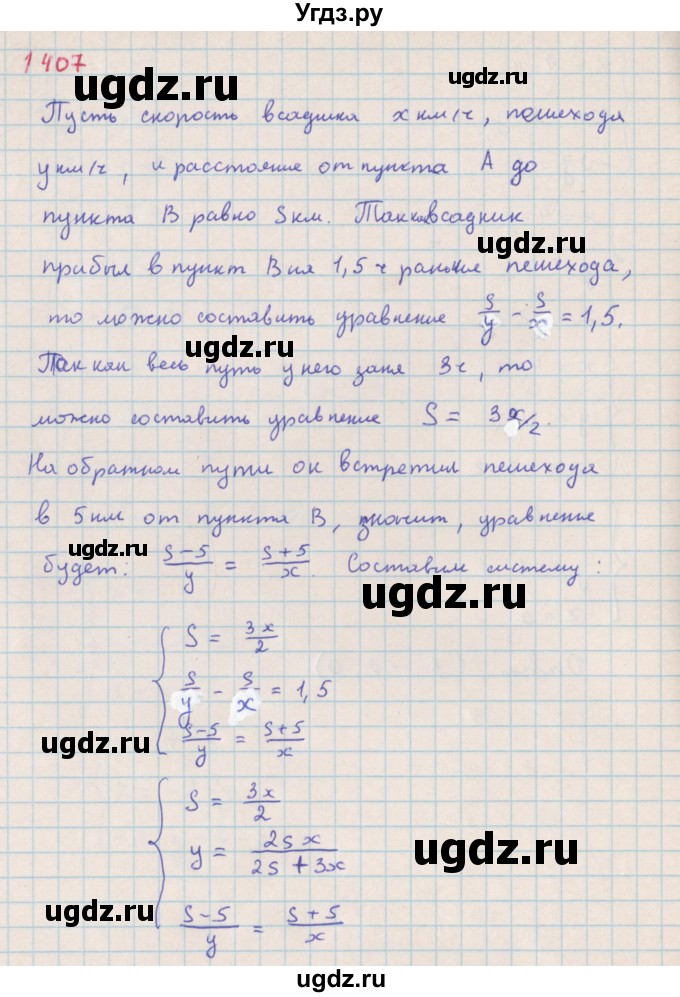 Угдз.ру
1407
ugdz.ru
Пусть скорость всадника x км/ч, пешехода
y км/ч, и расстояние от пункта А до
пункта В равно S км. Так как всадник
ugdz.ru
прибыл в пункт В на 1,5 ч раньше пешехода,
то можно составить уравнение S/y - S/x = 1,5.
ugdz.ru
Так как весь путь у него заня 3ч, то
можно составить уравнение S = 3x/2.
На обратном пути он встретил пешехода
в 5 км от пункта В, значит, уравнение
ugdz.ru
будет: (S-5)/y = (S+5)/x. Составим систему:
ugdz.ru
S = 3x/2
S/y - S/x = 1,5
(S-5)/y = (S+5)/x
ugdz.ru
S = 3x/2
y = 2Sx/(2S+3x)
ugdz.ru
(S-5)/y = (S+5)/x
ugdz.ru
ugdz.ru